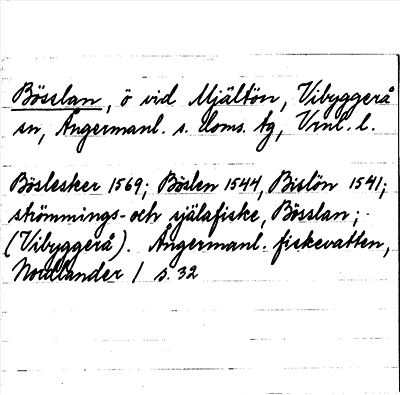 Bösslan, ö vid Mjältön, Vibyggerå
sn, Ångermanl. s. doms. tg, Vrnl. l.
Böslesker 1569; Böslen 1544, Bislön 1541;
strömmings- och själafiske, Bösslan;
(Vibyggerå). Ångermanl. fiskevatten,
Nordlander 1 s. 32